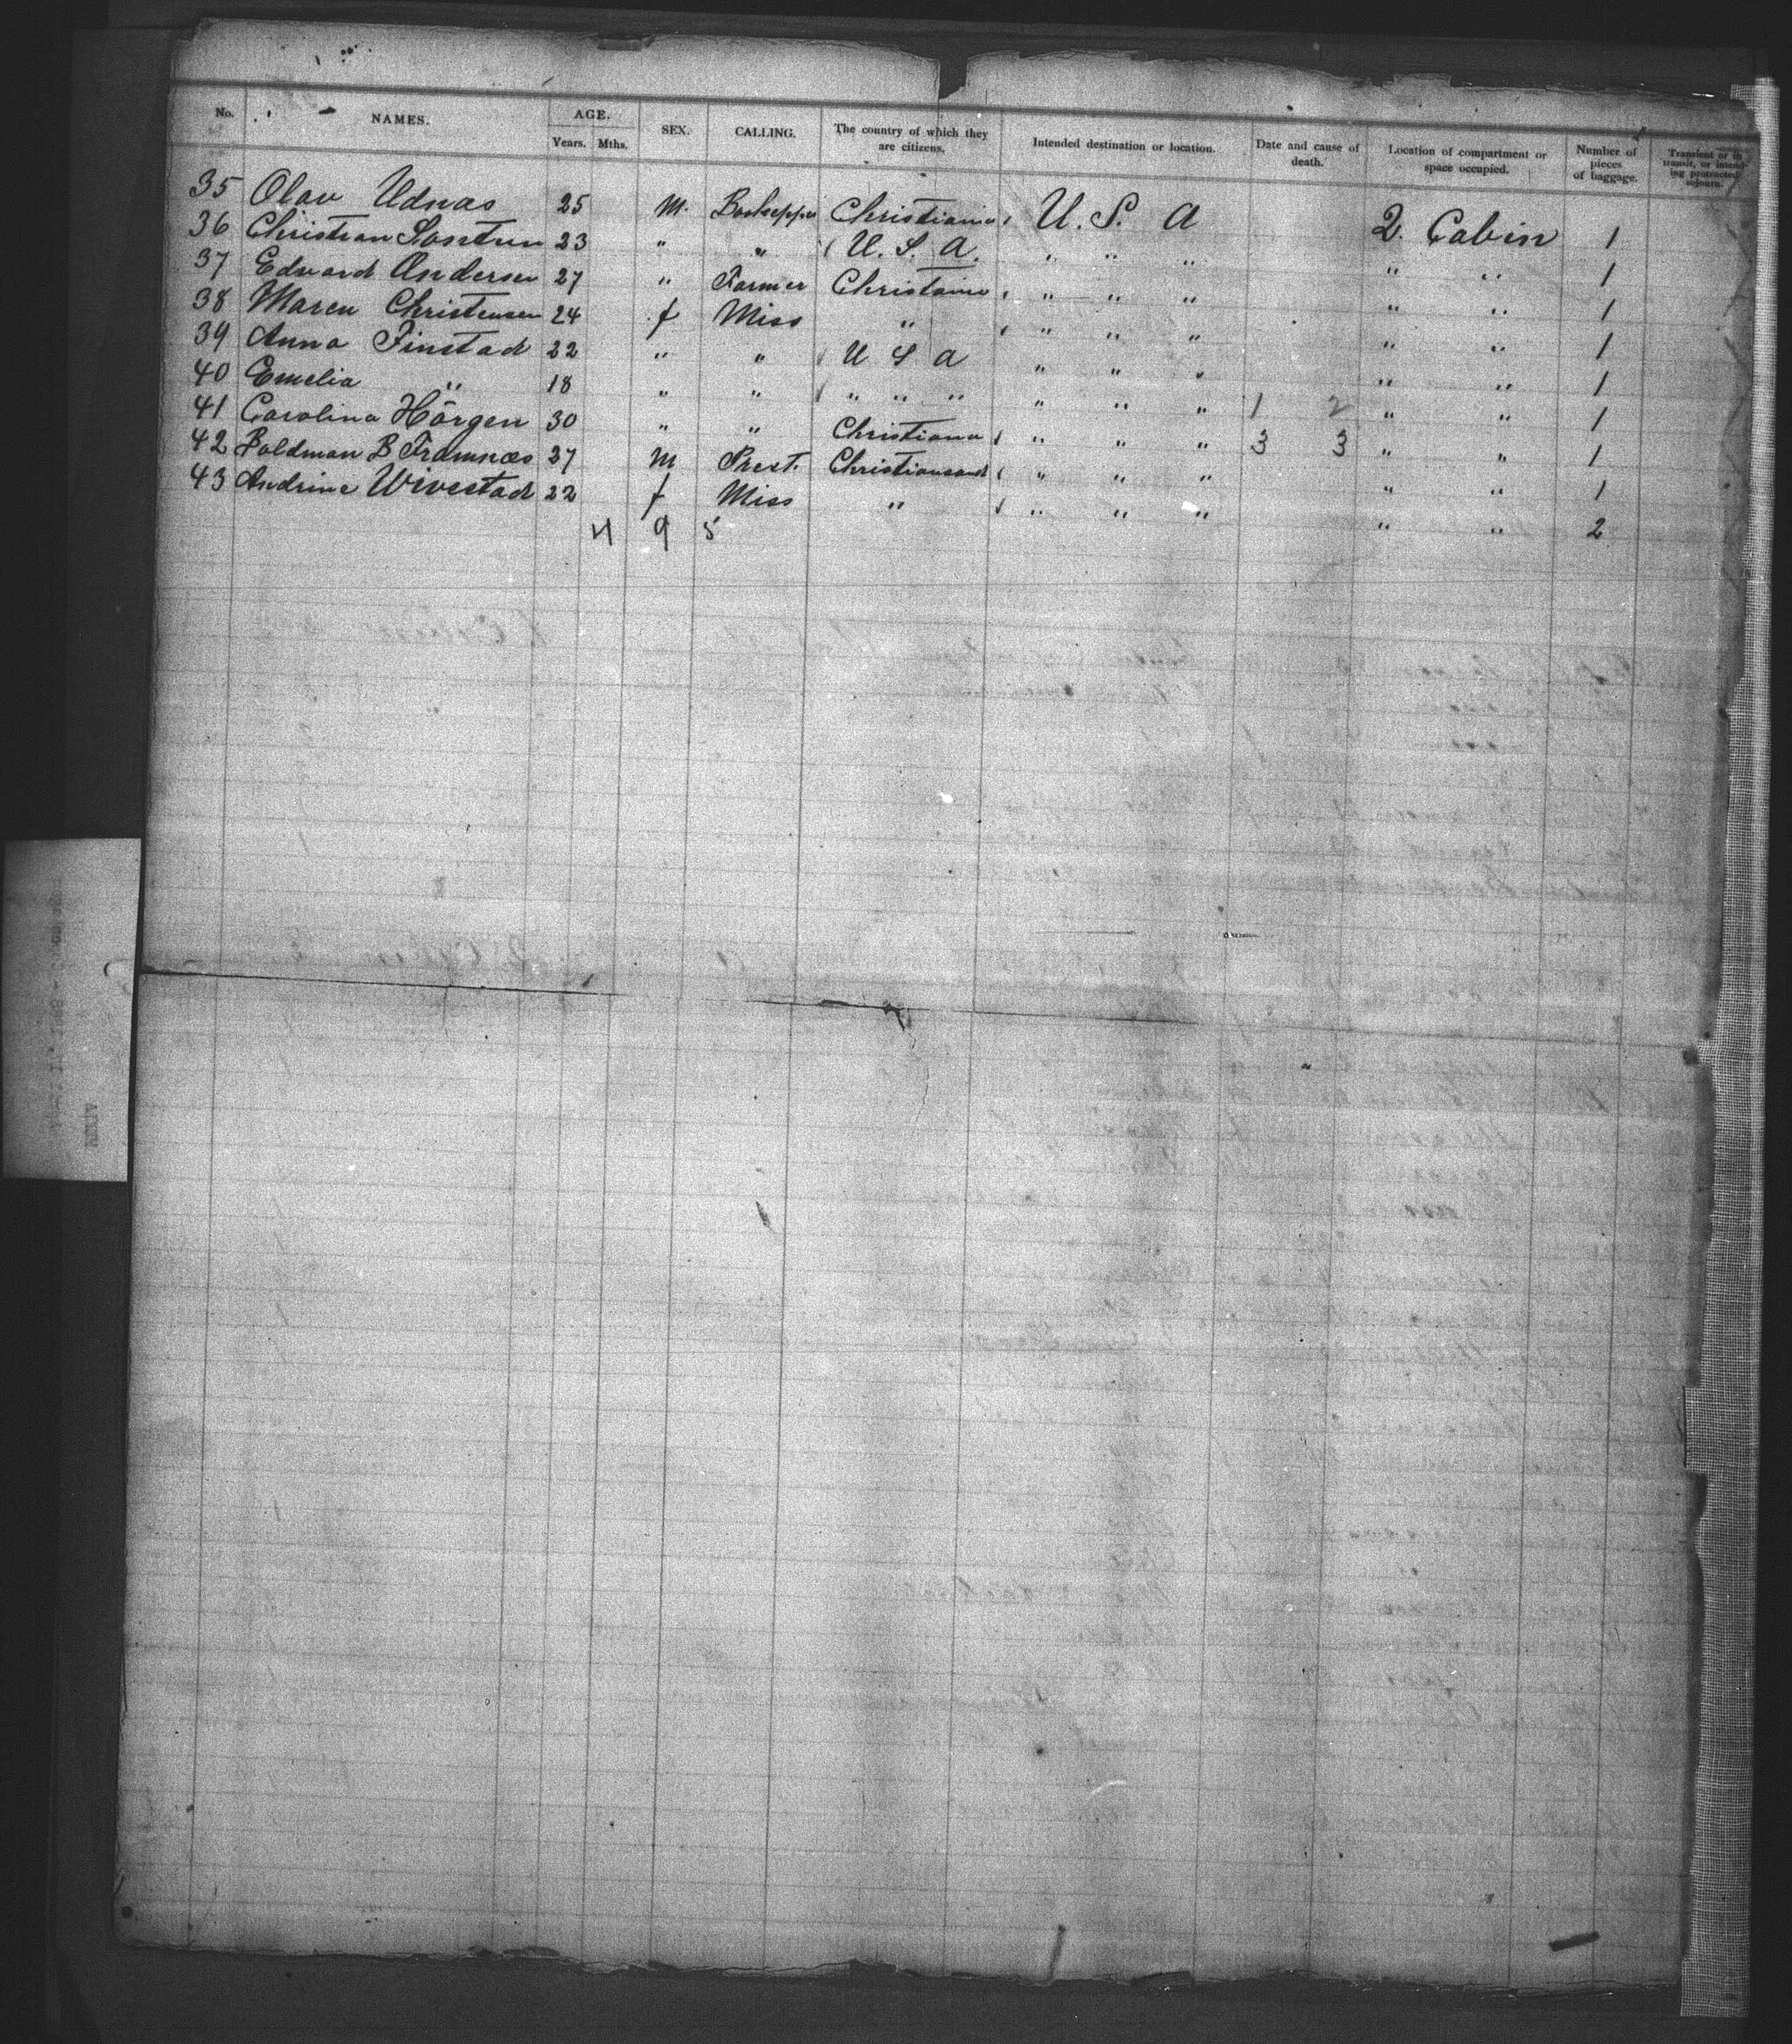 No. NAMES. AGE. Years. Mths. SEX. CALLING. The country of which they are citizens. Intended destination or location. Date and cause of death. Location of compartment or space occupied. Number of pieces of baggage. Transient or in transit, or intending protracted sojourn.
35 Olav Udnas 25 M. Christiania U. S. A 2. Cabin 1
36 Christian 23 " " U. S. A. " " " " " 1
37 Edward Andersen 27 " Farmer Christiania " " " " " 1
38 Maren Christensen 24 f Miss " " " " " " 1
39 Anna Finstad 22 " " U S A " " " " " 1
40 Emelia " 18 " " " " " " " " 1 2 " " 1
41 Carolina Hörgen 30 " " Christiania " " " 3 3 " " 1
42 B Framnæs 27 M Prest. Christiansand " " " " " 1
43 Andrine Wivestad 22 f Miss " " " " " " 2
4 9 5